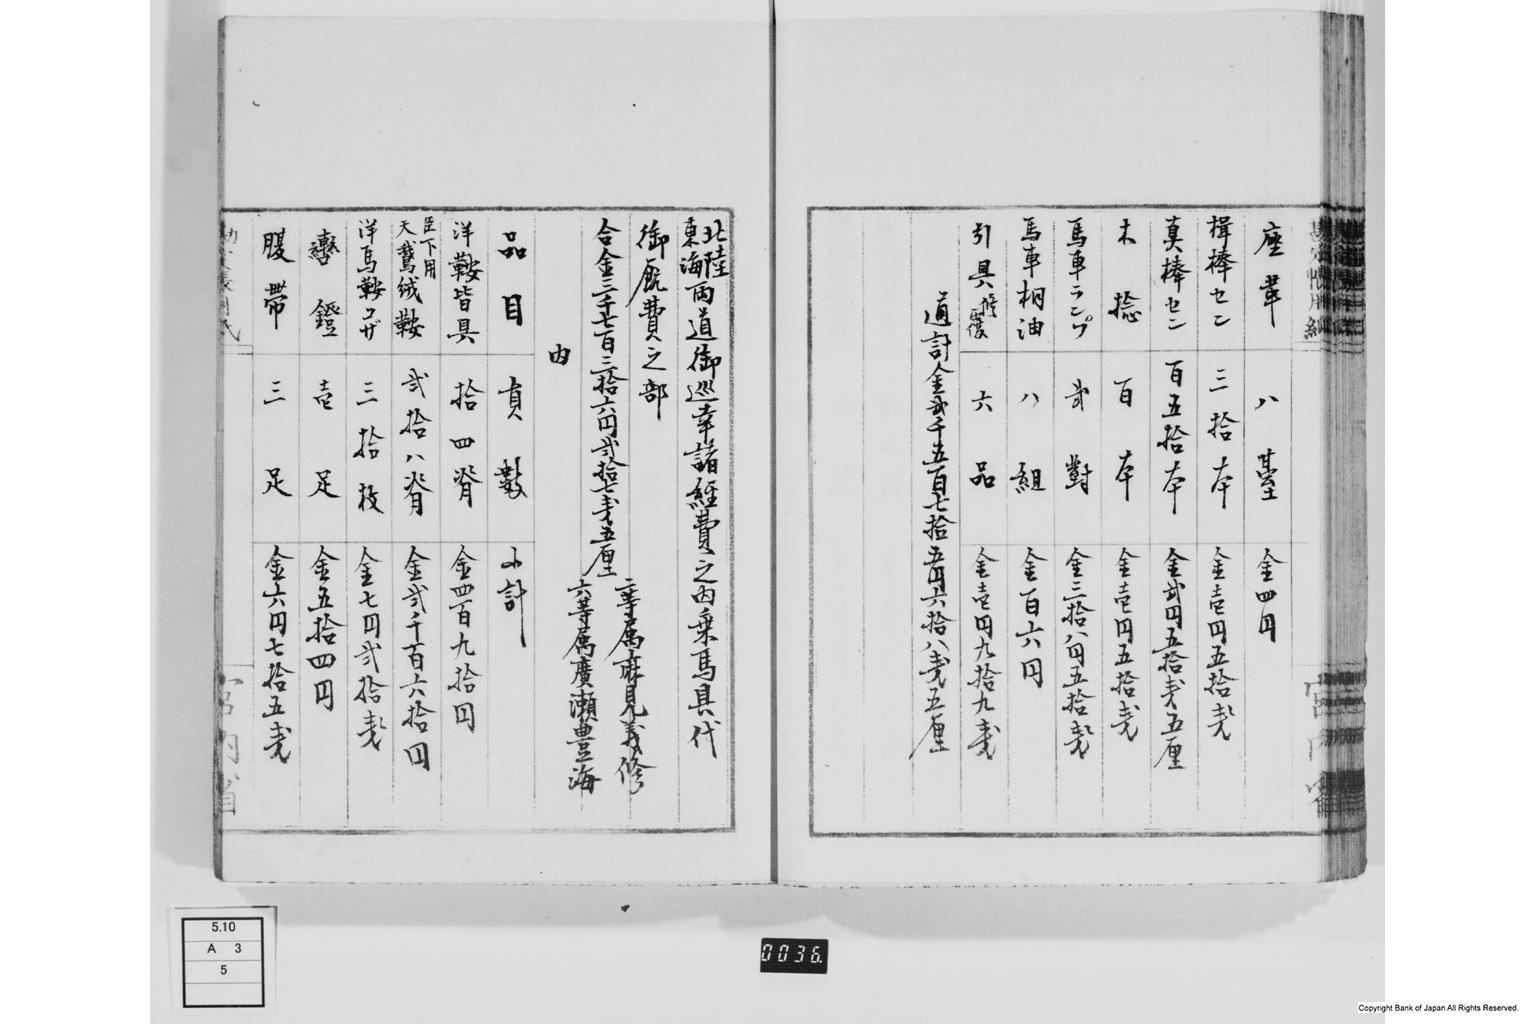 座革 八臺 金四円
楫棒セン 三拾本 金壱円五拾銭
真棒セン 百五拾本 金弐円五拾銭五厘
木捻 百本 金壱円五拾銭
馬車ランプ 弐對 金三拾八円五拾銭
馬車桐油 八組 金百六円
引具修覆 六品 金壱円九拾九銭
通計金弐千五百七拾五円六拾八銭五厘
宮内省
北陸東海両道御巡幸諸経費之内乗馬具代
御厩費之部
合金三千七百三拾六円弐拾七銭五厘
等属麻見義修
六等属廣瀬豊海
内
品目 員數 小計
洋鞍皆具 拾四脊 金四百九拾円
臣下用
天鵞絨鞍 弐拾八脊 金弐千百六拾円
洋馬鞍コザ 三拾枚 金七円弐拾銭
轡鐙 壱足 金五拾四円
腹帯 三足 金六円七拾五銭
宮内省
5.10
A 3
5
0036.
Copyright Bank of Japan All Rights Reserved.